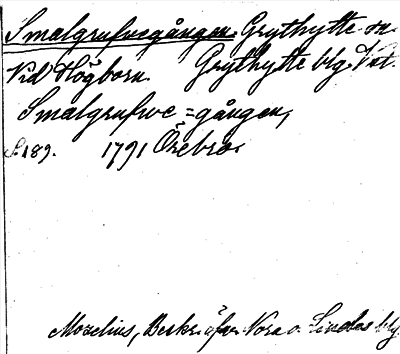 Smalgrufvegången. Grythytte sn.
Vid Högborn. Grythytte blg. Vnt.
Smalgrufwe=gången,
S. 189. 1791 Örebro.
Mozelius, Beskr. öfver Nora o. Lindes blg